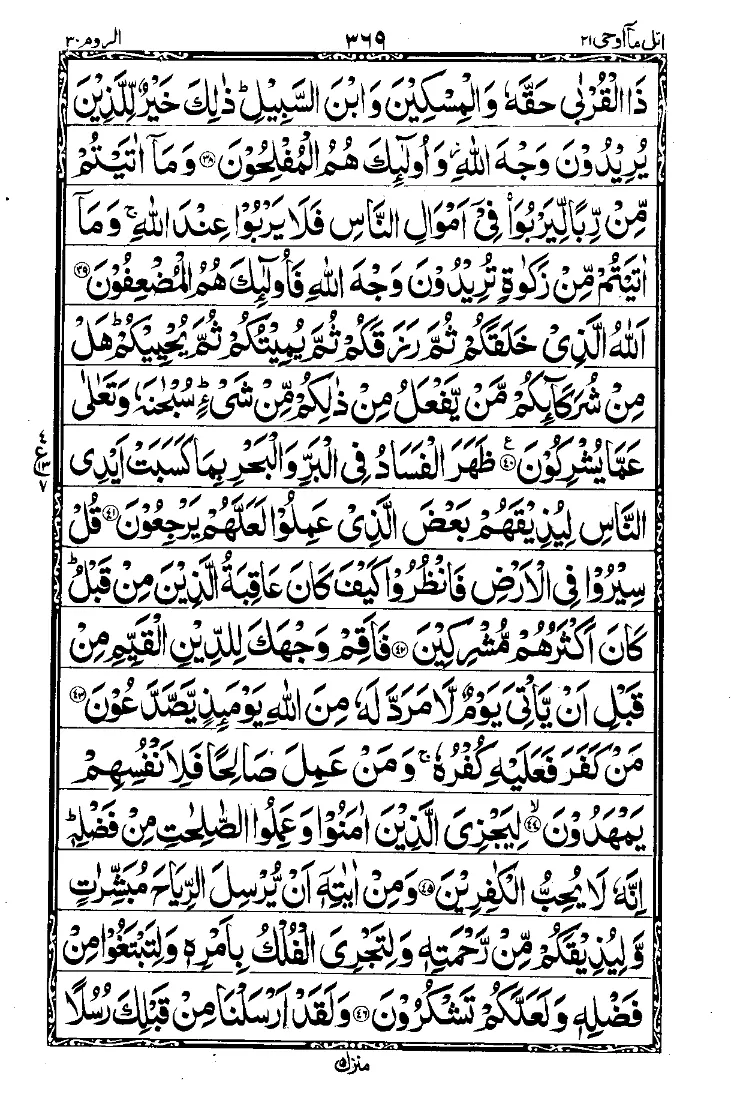 اتل مآ اوحی ۲۱ ۳۶۹ الروم ۳۰
ذَا الْقُرْبٰى حَقَّهٗ وَالْمِسْكِيْنَ وَابْنَ السَّبِيْلِ ؕ ذٰلِكَ خَيْرٌ لِّلَّذِيْنَ
يُرِيْدُوْنَ وَجْهَ اللّٰهِ ؗ وَاُولٰٓئِكَ هُمُ الْمُفْلِحُوْنَ ﴿۳۸﴾ وَمَاۤ اٰتَيْتُمْ
مِّنْ رِّبًا لِّيَرْبُوَا۟ فِيْۤ اَمْوَالِ النَّاسِ فَلَا يَرْبُوْا عِنْدَ اللّٰهِ ۚ وَمَاۤ
اٰتَيْتُمْ مِّنْ زَكٰوةٍ تُرِيْدُوْنَ وَجْهَ اللّٰهِ فَاُولٰٓئِكَ هُمُ الْمُضْعِفُوْنَ ﴿۳۹﴾
اَللّٰهُ الَّذِيْ خَلَقَكُمْ ثُمَّ رَزَقَكُمْ ثُمَّ يُمِيْتُكُمْ ثُمَّ يُحْيِيْكُمْ ؕ هَلْ
مِنْ شُرَكَآئِكُمْ مَّنْ يَّفْعَلُ مِنْ ذٰلِكُمْ مِّنْ شَيْءٍ ؕ سُبْحٰنَهٗ وَتَعٰلٰى
عَمَّا يُشْرِكُوْنَ ﴿۴۰﴾ ع ظَهَرَ الْفَسَادُ فِي الْبَرِّ وَالْبَحْرِ بِمَا كَسَبَتْ اَيْدِي
۴ ع ۱۳ ۷
النَّاسِ لِيُذِيْقَهُمْ بَعْضَ الَّذِيْ عَمِلُوْا لَعَلَّهُمْ يَرْجِعُوْنَ ﴿۴۱﴾ قُلْ
سِيْرُوْا فِي الْاَرْضِ فَانْظُرُوْا كَيْفَ كَانَ عَاقِبَةُ الَّذِيْنَ مِنْ قَبْلُ ؕ
كَانَ اَكْثَرُهُمْ مُّشْرِكِيْنَ ﴿۴۲﴾ فَاَقِمْ وَجْهَكَ لِلدِّيْنِ الْقَيِّمِ مِنْ
قَبْلِ اَنْ يَّاْتِيَ يَوْمٌ لَّا مَرَدَّ لَهٗ مِنَ اللّٰهِ يَوْمَئِذٍ يَّصَّدَّعُوْنَ ﴿۴۳﴾
مَنْ كَفَرَ فَعَلَيْهِ كُفْرُهٗ ۚ وَمَنْ عَمِلَ صَالِحًا فَلِاَنْفُسِهِمْ
يَمْهَدُوْنَ ﴿۴۴﴾ ۙ لِيَجْزِيَ الَّذِيْنَ اٰمَنُوْا وَعَمِلُوا الصّٰلِحٰتِ مِنْ فَضْلِهٖ ؕ
اِنَّهٗ لَا يُحِبُّ الْكٰفِرِيْنَ ﴿۴۵﴾ وَمِنْ اٰيٰتِهٖۤ اَنْ يُّرْسِلَ الرِّيَاحَ مُبَشِّرٰتٍ
وَّلِيُذِيْقَكُمْ مِّنْ رَّحْمَتِهٖ وَلِتَجْرِيَ الْفُلْكُ بِاَمْرِهٖ وَلِتَبْتَغُوْا مِنْ
فَضْلِهٖ وَلَعَلَّكُمْ تَشْكُرُوْنَ ﴿۴۶﴾ وَلَقَدْ اَرْسَلْنَا مِنْ قَبْلِكَ رُسُلًا
منزل ۵